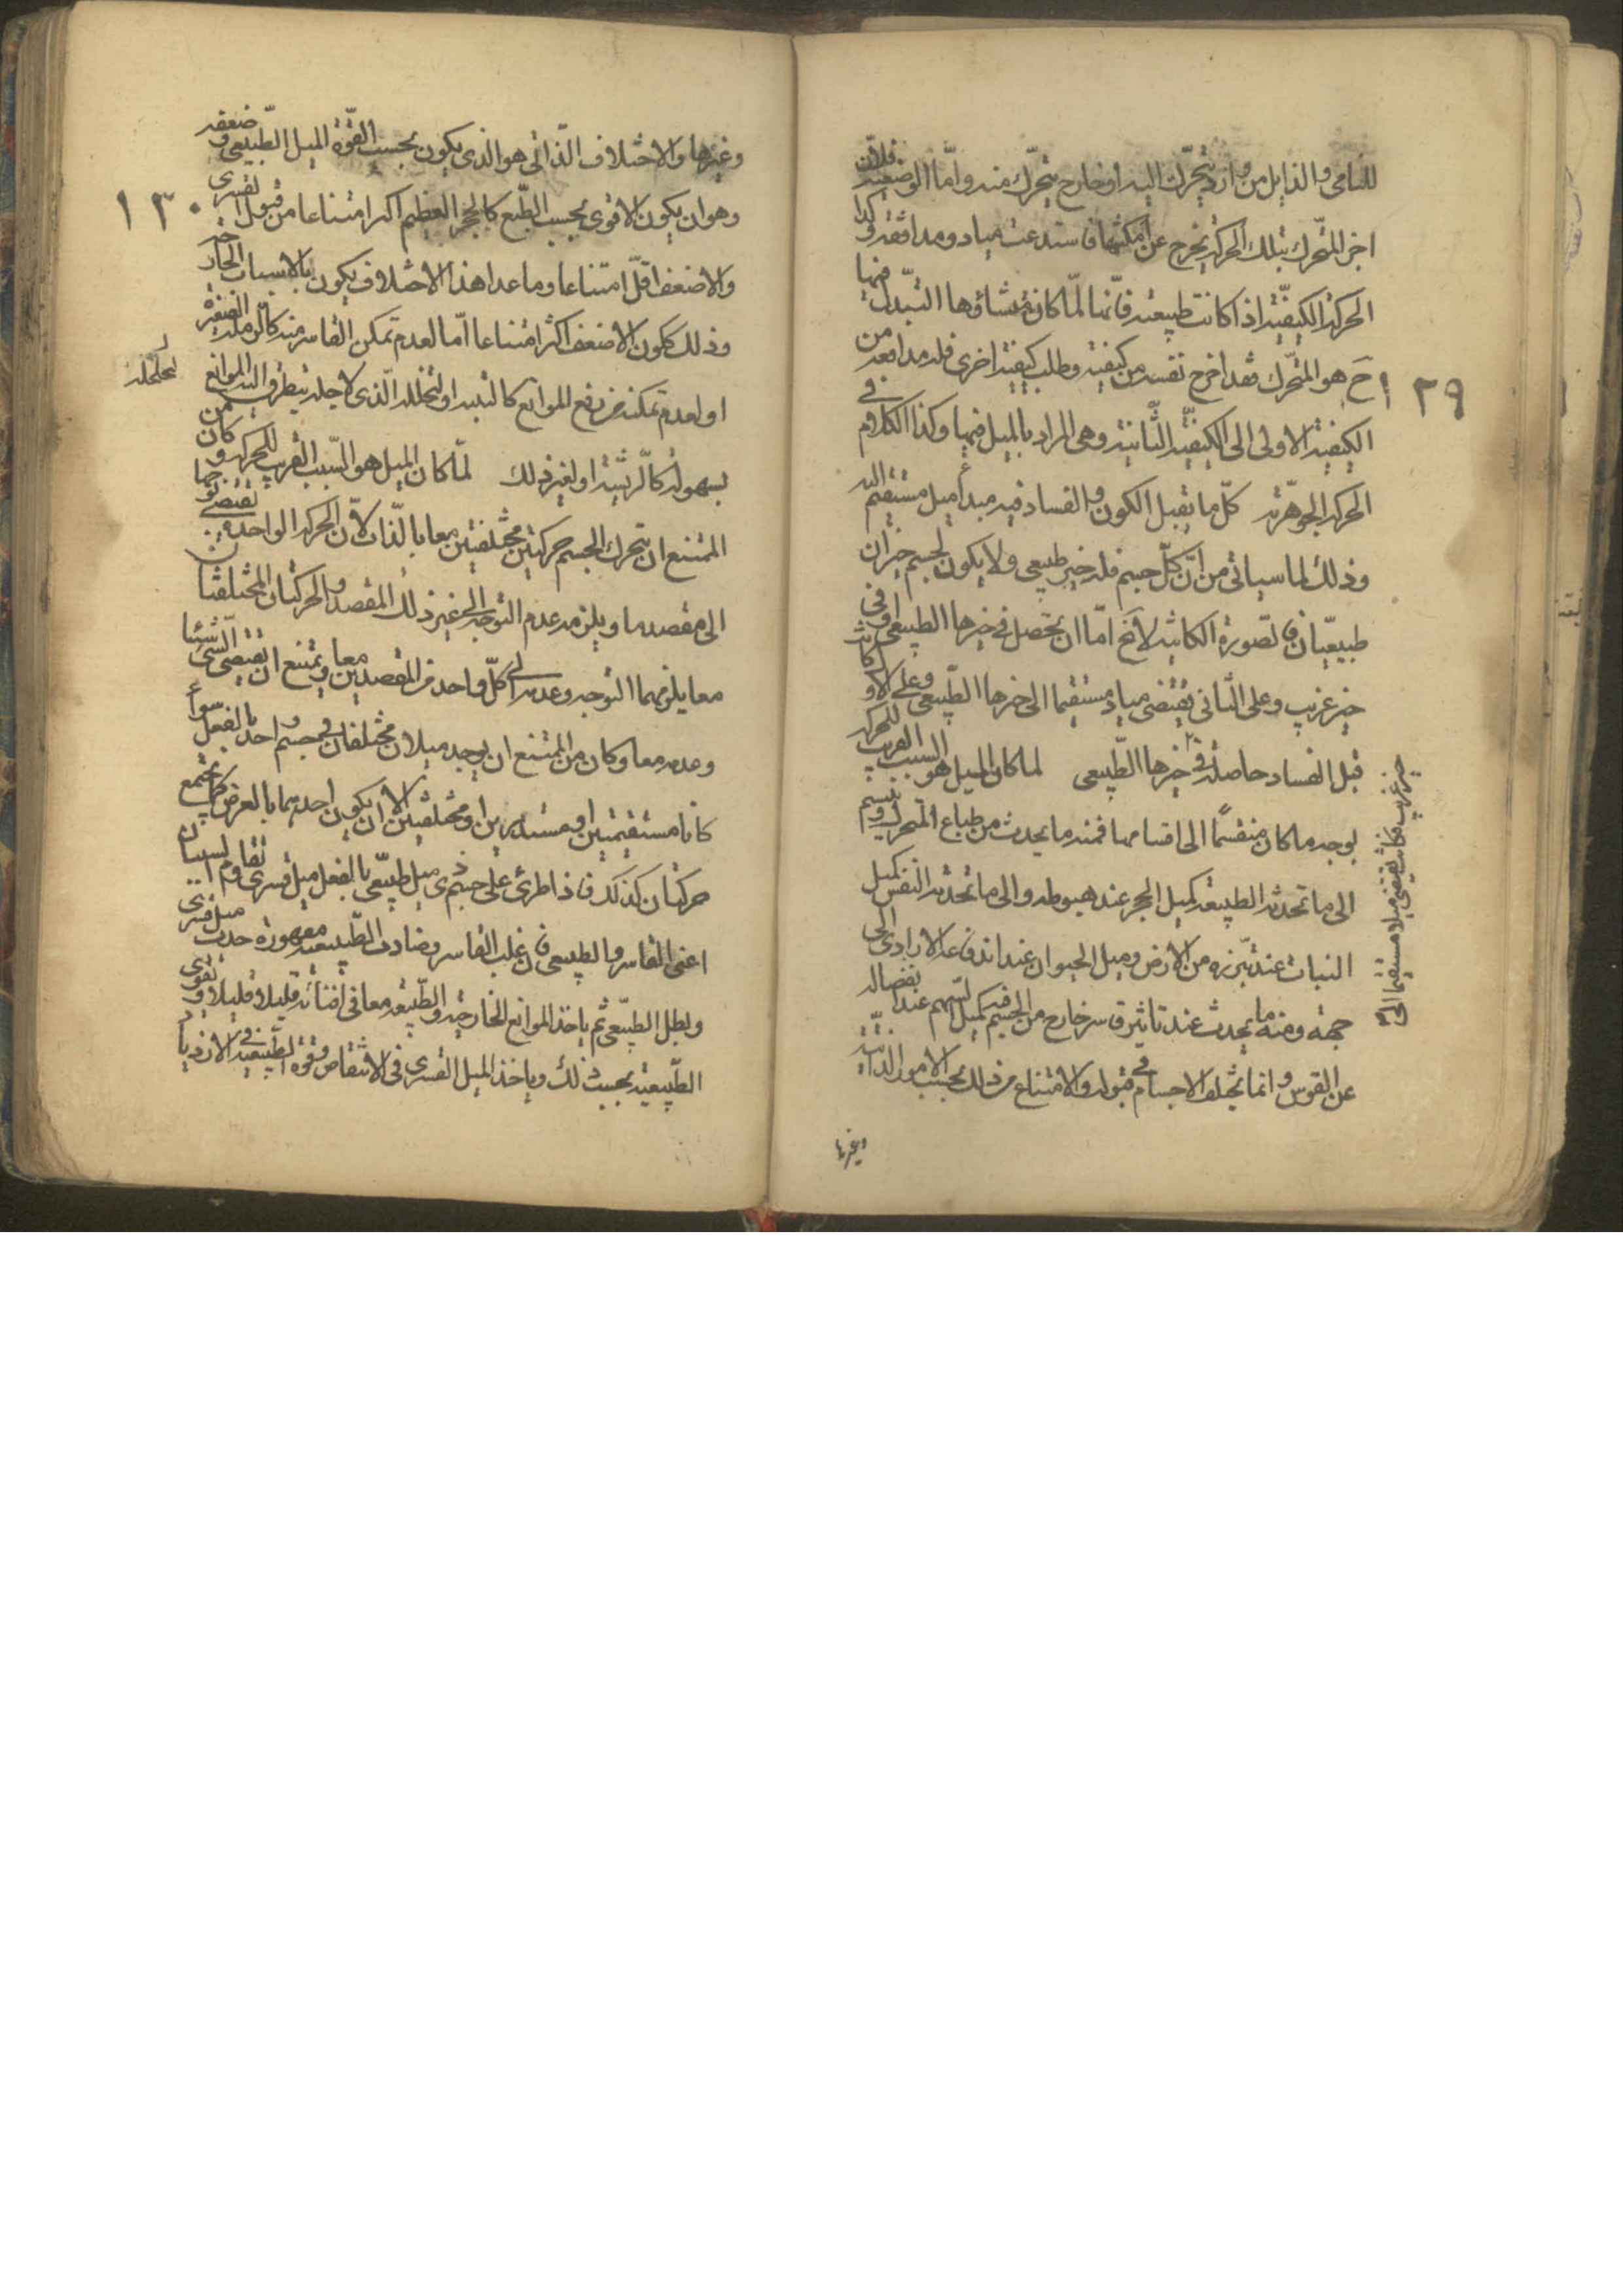 للنامى والذابل من وارد يتحرك اليه او خارج يتحرك منه واما الوضعية فلان
اجزا المتحرك بتلك الحركة يخرج عن امكنتها فاستدعت ميلا ومدافعة وكذا
الحركة الكيفية اذا كانت طبيعية فانها لما كان منشاؤها التبدل فيها
ح هو المتحرك فقد اخرج نفسه من كيفية وطلب كيفية اخرى فله مدافعة من
١٢٩
الكيفية الاولى الى الكيفية الثانية وهى المراد بالميل فيها وكذا الكلام فى
الحركة الجوهرية كل ما تقبل الكون والفساد فيه مبدأ ميل مستقيم
وذلك لما سياتى من ان كل جسم فله حيز طبيعى ولا يكون لجسم حيزان
طبيعيان فالصورة الكائنة لا يخ اما ان تحصل فى حيزها الطبيعى او فى
حيز غريب وعلى الثانى يقتضى ميلا مستقيما الى حيزها الطبيعى وعلى الاول كانت
قبل الفساد حاصلة فى حيزها الطبيعى لما كان الميل هو السبب القريب للحركة
حيز غريب فكانت تقتضى ميلا مستقيما الى
بوجه ما كان منقسما الى اقسامها فمنه ما يحدث من طباع المتحرك وينقسم
الى ما تحدثه الطبيعة كميل الحجر عند هبوطه والى ما تحدثه النفس كميل
النبات عند تبرزه من الارض وميل الحيوان عند اندفاعه الارادى الى
جهة ومنه ما يحدث عند تاثير قاسر خارج من الجسم فيه كميل السهم عند انفصاله
عن القوس وانما يختلف الاجسام فى قبوله والامتناع من ذلك بحسب الامور الذاتية
وغيرها
وغيرها والاختلاف الذاتى هو الذى يكون بحسب القوة الميل الطبيعى وضعفه
وهو ان يكون الاقوى بحسب الطبع كالحجر العظيم اكثر امتناعا من قبول القسرى
١٣٠
والاضعف اقل امتناعا وما عدا هذا الاختلاف يكون بالاسباب الخارجية
وذلك ككون الاضعف اكثر امتناعا اما لعدم تمكن القاسر منه كالرملة الصغيرة
او لعدم تمكنه من دفع الموانع كالتبنة او لتخلله الذى لاجله يتطرق اليه الموانع
لتخلخله
بسهولة كالريشة او لغير ذلك لما كان الميل هو السبب القريب للحركة وكان من
الممتنع ان يتحرك الجسم حركتين مختلفتين معا بالذات لان الحركة الواحدة تقتضى توجها
الى مقصد ما ويلزمه عدم التوجه الى غير ذلك المقصد والحركتان المختلفتان
معا يلزمهما التوجه وعدمه الى كل واحد من المقصدين معا ويمتنع ان يقتضى الشئ شيئا
وعدمه معا وكان من الممتنع ان يوجد ميلان مختلفان فى جسم واحد بالفعل سواء
كانا مستقيمين او مستديرين او مختلفين الا ان يكون احدهما بالعرض كما يجتمع
حركتان كذلك فاذا طرئ على جسم ذى ميل طبيعى بالفعل ميل قسرى تقاوم السببان
اعنى القاسر والطبيعى فان غلب القاسر وصارت الطبيعة مقهورة حدث ميل قسرى
وبطل الطبيعى ثم ياخذ الموانع الخارجية والطبيعة معا فى افنائه قليلا قليلا ويقوى
الطبيعية بحسب ذلك وياخذ الميل القسرى فى الانتقاص وقوة الطبيعية فى الازدياد